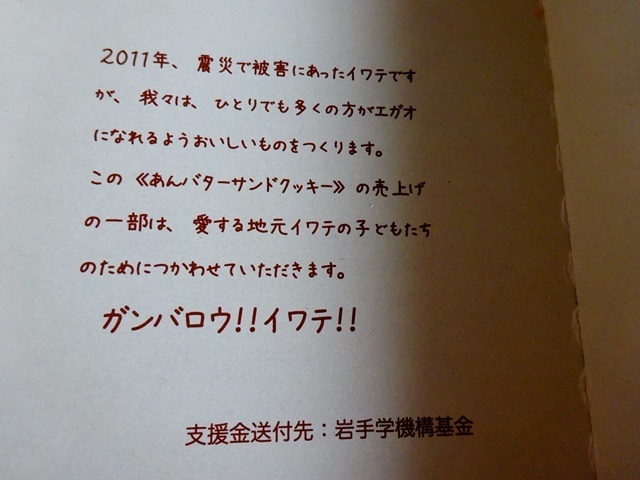 2011年、震災で被害にあったイワテです
が、我々は、ひとりでも多くの方がエガオ
になれるようおいしいものをつくります。
この《あんバターサンドクッキー》の売上げ
の一部は、愛する地元イワテの子どもたち
のためにつかわせていただきます。
ガンバロウ!!イワテ!!
支援金送付先：岩手学機構基金